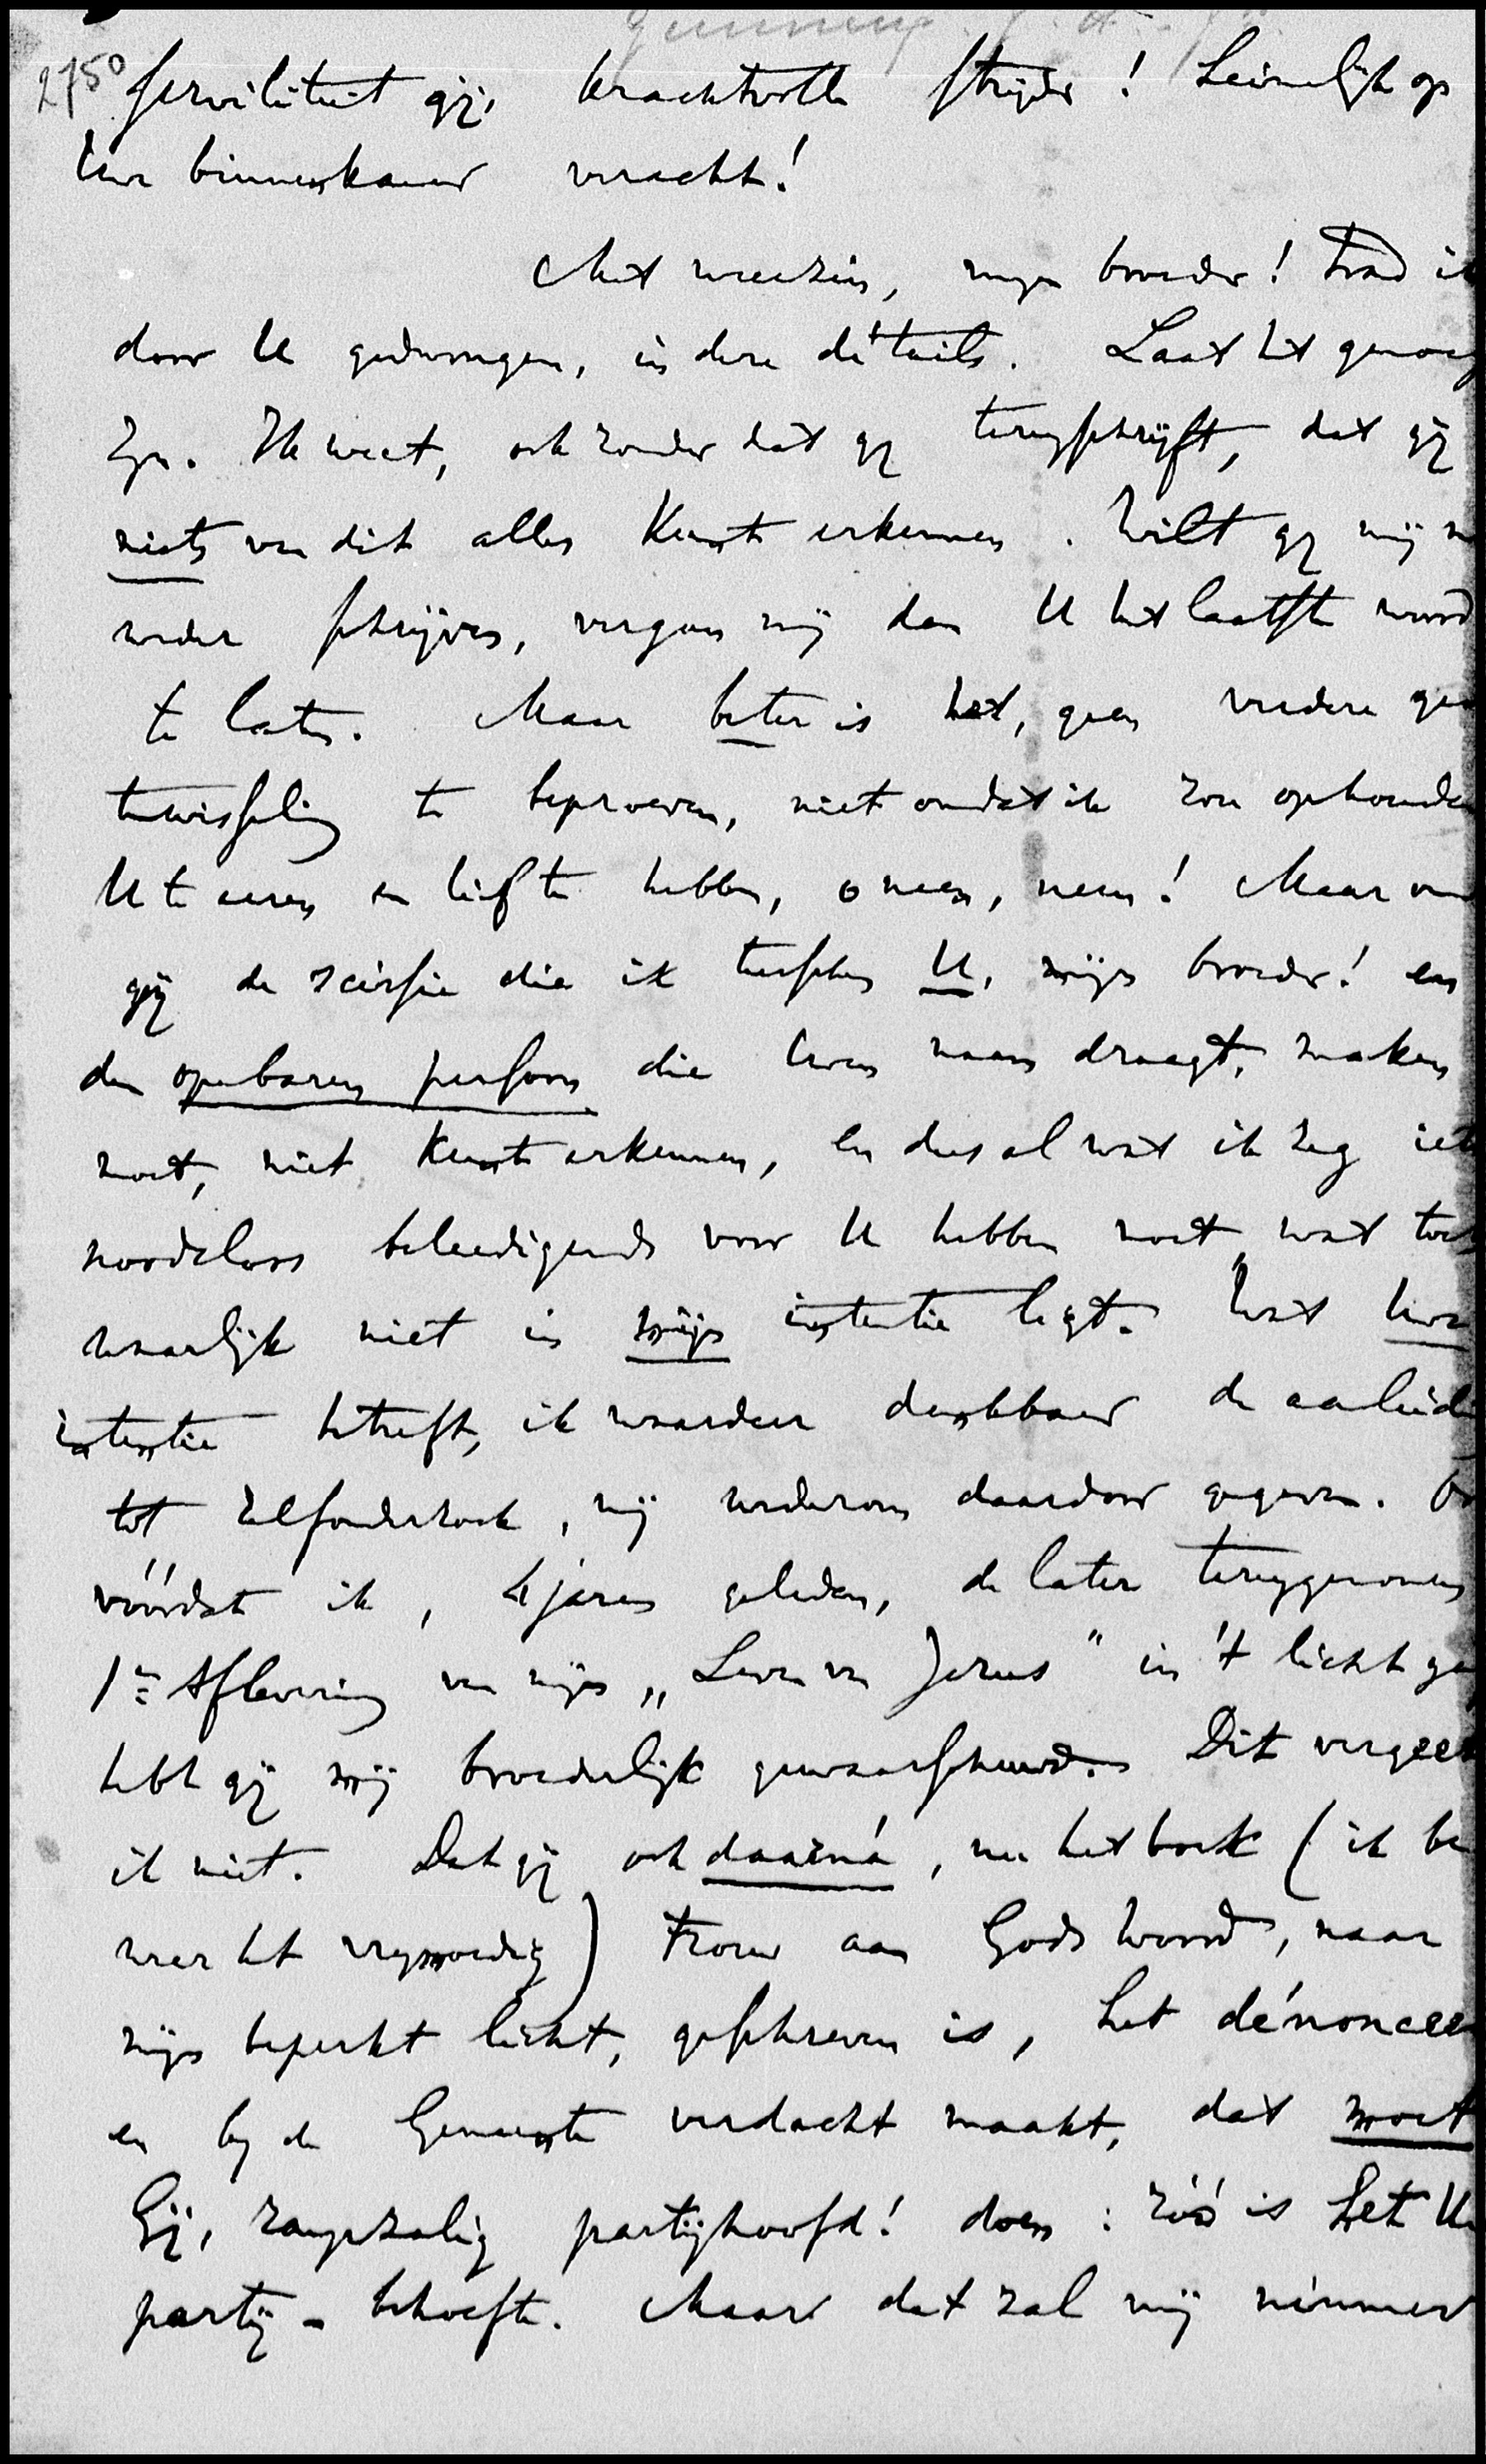 2750 serviliteit gij, krachtvolle strijder! heimelijk op
Uwe binnenkamer veracht!
Met weerzin, mijn broeder! trad ik
door U gedwongen, in deze détails. Laat het genoeg
zijn. Ik weet, ook zonder dat gij terugschrijft, dat gij
niets van dit alles kunt erkennen. Wilt gij mij
weder schrijven, vergun mij dan U het laatste woord
te laten. Maar beter is het, geen verdere ge
twisseling te beproeven, niet omdat ik zou ophouden
U te eeren en lief te hebben, o neen, neen! Maar om
gij de scissie die ik tusschen U, mijn broeder! en
den openbaren persoon die Uwen naam draagt, maken
moet, niet kunt erkennen, en dus al wat ik zeg iets
noodeloos beleedigends voor U hebben moet, wat toch
waarlijk niet in mijn intentie ligt. Wat Uwe
intentie betreft, ik waardeer dankbaar de aanleidi
tot zelfonderzoek, mij wederom daardoor gegeven.
vóórdat ik, 4 jaren geleden, de later teruggenomen
1e Aflevering van mijn „Leven van Jezus" in 't licht ga
hebt gij mij broederlijk gewaarschuwd. Dit vergeet
ik niet. Dat gij ook daarná, nu het boek (ik be
weer het vrijmoedig) trouw aan Gods Woord, naar
mijn beperkt licht, geschreven is, het dénonceer
en bij de Gemeente verdacht maakt, dat moet
Gij, rampzalig partijhoofd! doen: zóó is het Uw
partij-behoefte. Maar dat zal mij nimmer